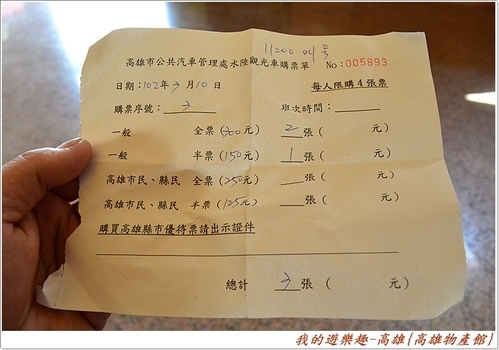 11:00 叫号
高雄市公共汽車管理處水陸觀光車購票單 No:005893
日期:102年3月10日 每人限購4張票
購票序號: 3 班次時間:
一般 全票(300元) 2張( 元)
一般 半票(150元) 1張( 元)
高雄市民、縣民 全票(250元) 張( 元)
高雄市民、縣民 半票(125元) 張( 元)
購買高雄縣市優待票請出示證件
總計 3張 ( 元)
我的遊樂趣-高雄{高雄物產館}